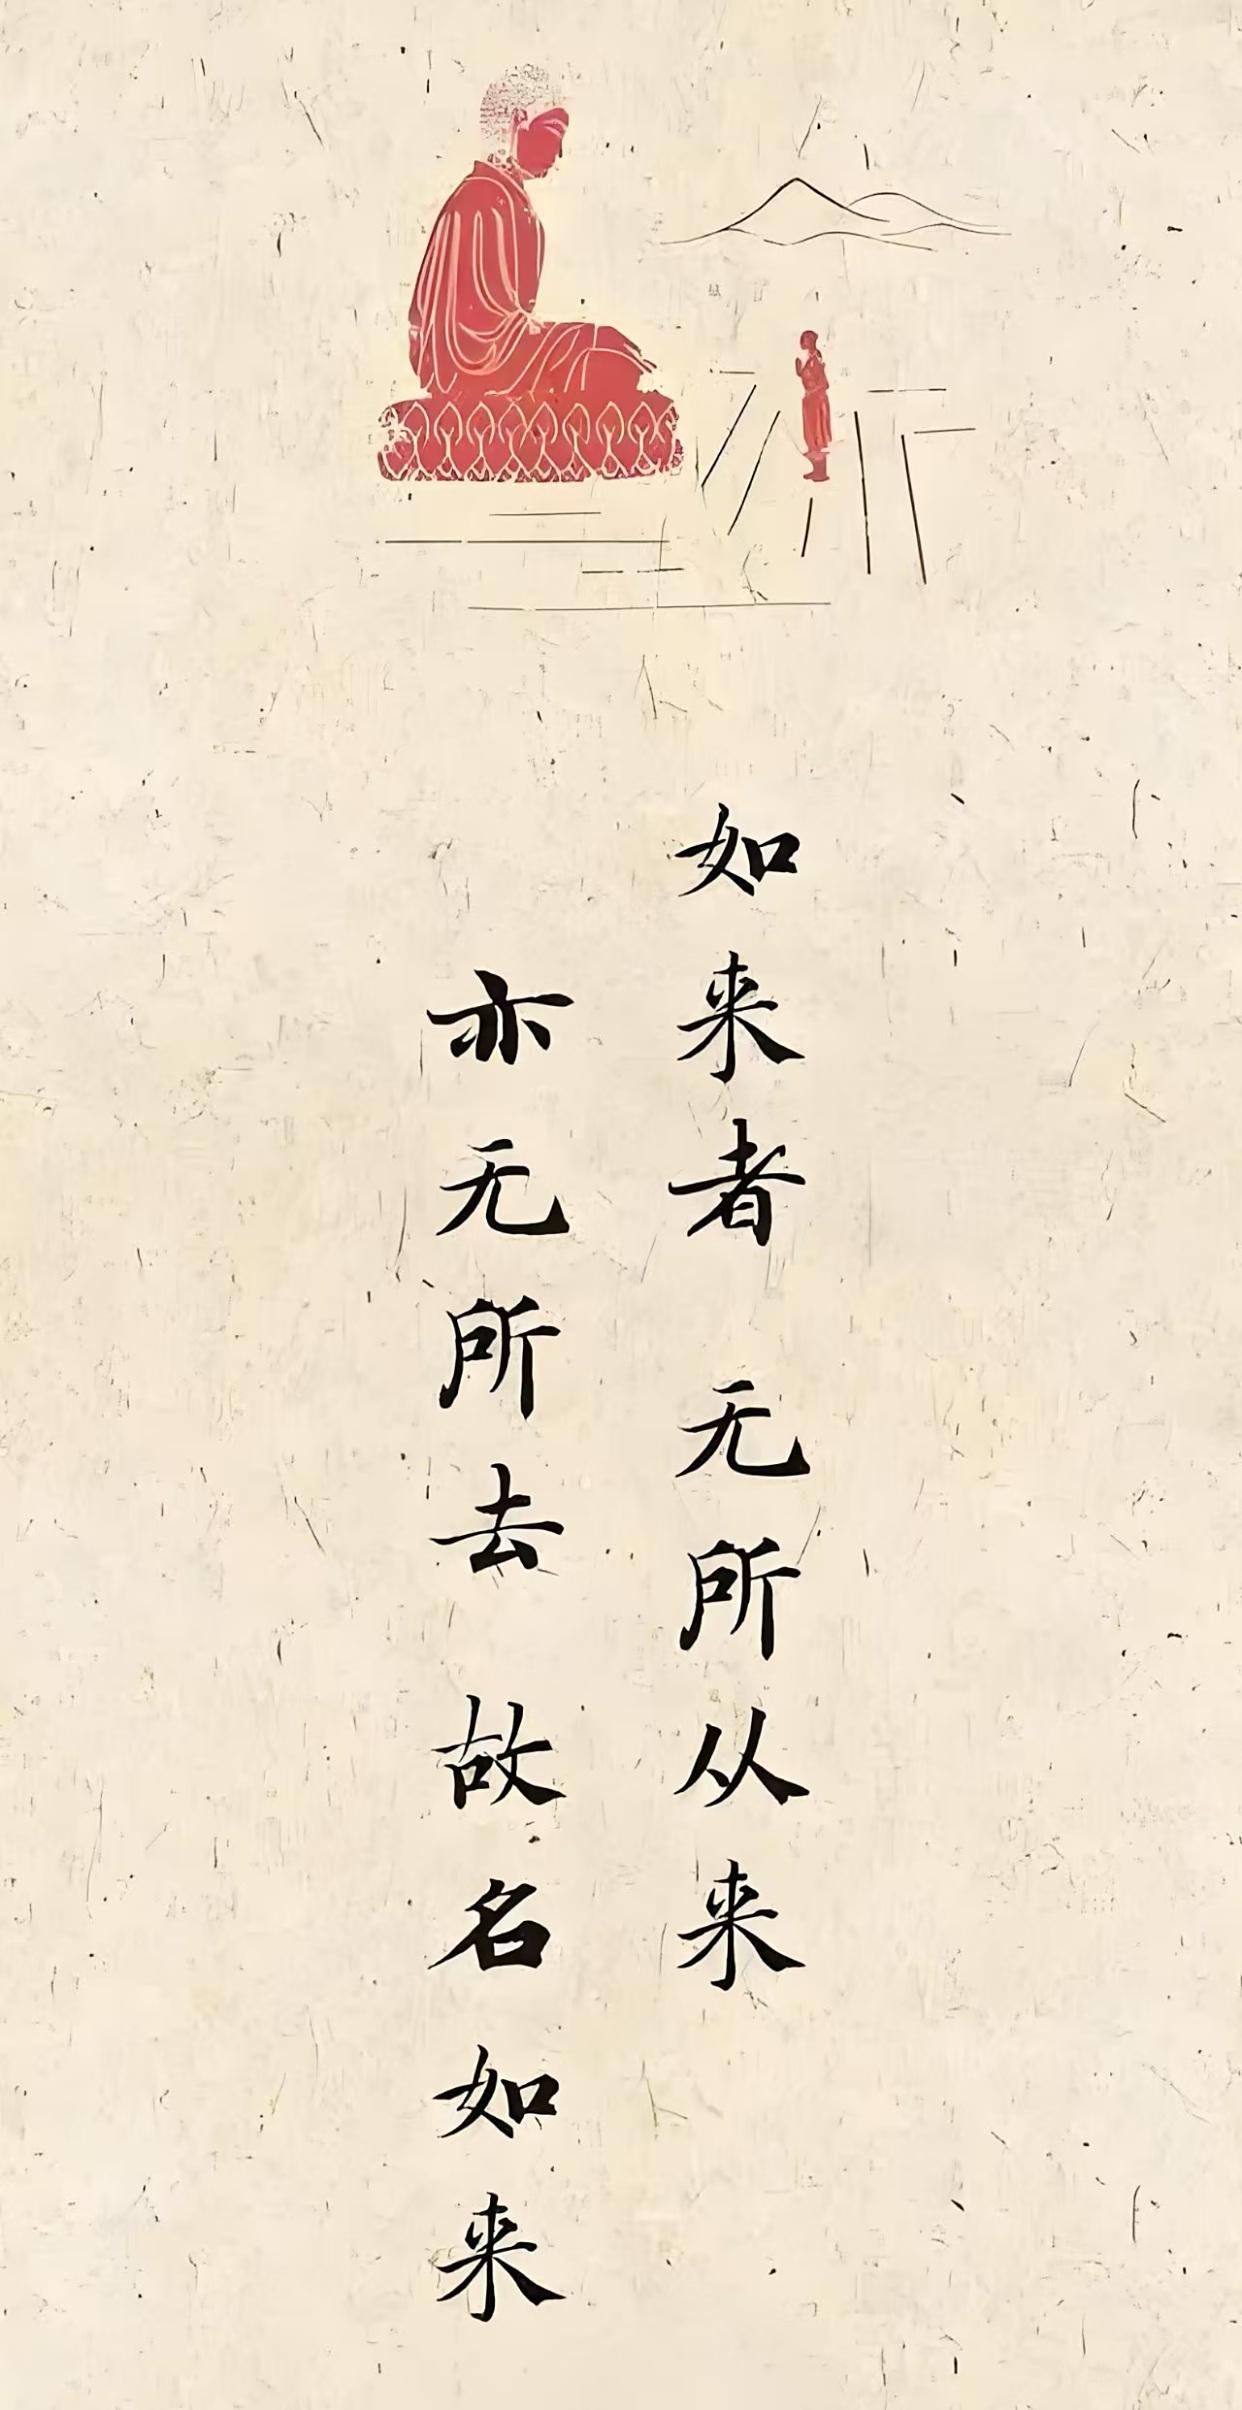 如来者 无所从来
亦无所去 故名如来